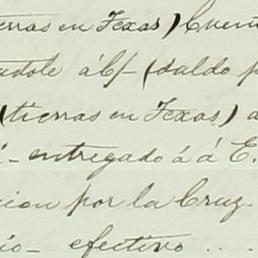 ierras en Texas) Cuen
ndole á C/- (saldo p
(tierras en Texas) a
- entregado á á E.
cion por la Cruz.
io- efectivo . . .